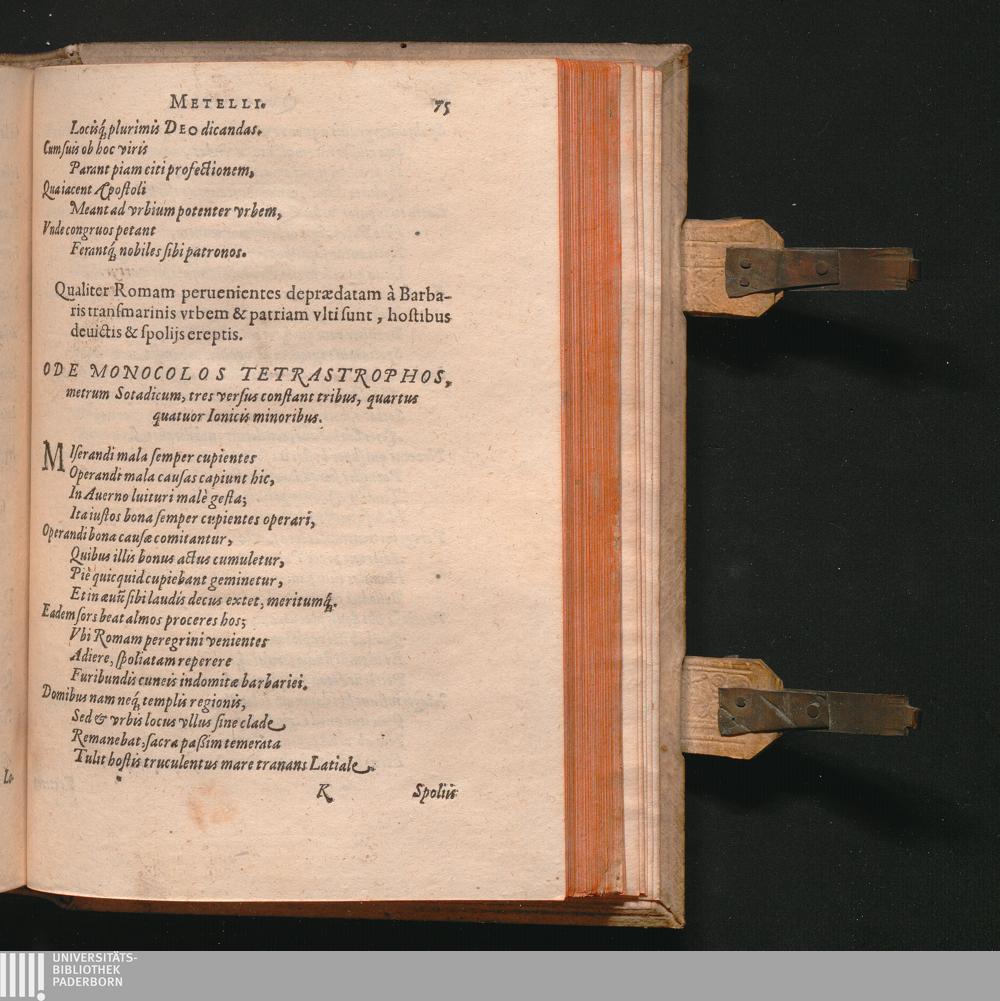 METELLI. 75
Locisq́; plurimis DEO dicandas.
Cum suis ob hoc viris
Parant piam citi profectionem,
Qua iacent Apostoli
Meant ad vrbium potenter vrbem,
Vnde congruos petant
Ferantq́; nobiles sibi patronos.
Qualiter Romam peruenientes deprædatam à Barba-
ris transmarinis vrbem & patriam vlti sunt, hostibus
deuictis & spolijs ereptis.
ODE MONOCOLOS TETRASTROPHOS,
metrum Sotadicum, tres versus constant tribus, quartus
quatuor Ionicis minoribus.
MIserandi mala semper cupientes
Operandi mala causas capiunt hic,
In Auerno luituri malè gesta;
Ita iustos bona semper cupientes operari,
Operandi bona causæ comitantur,
Quibus illis bonus actus cumuletur,
Piè quicquid cupiebant geminetur,
Et in æuũ sibi laudis decus extet, meritumq́;.
Eadem sors beat almos proceres hos;
Vbi Romam peregrini venientes
Adiere, spoliatam reperere
Furibundis cuneis indomitæ barbariei.
Domibus nam neq́; templis regionis,
Sed & vrbis locus vllus sine clade
Remanebat, sacra paßim temerata
Tulit hostis truculentus mare tranans Latiale.
K Spoliis
UNIVERSITÄTS-
BIBLIOTHEK
PADERBORN